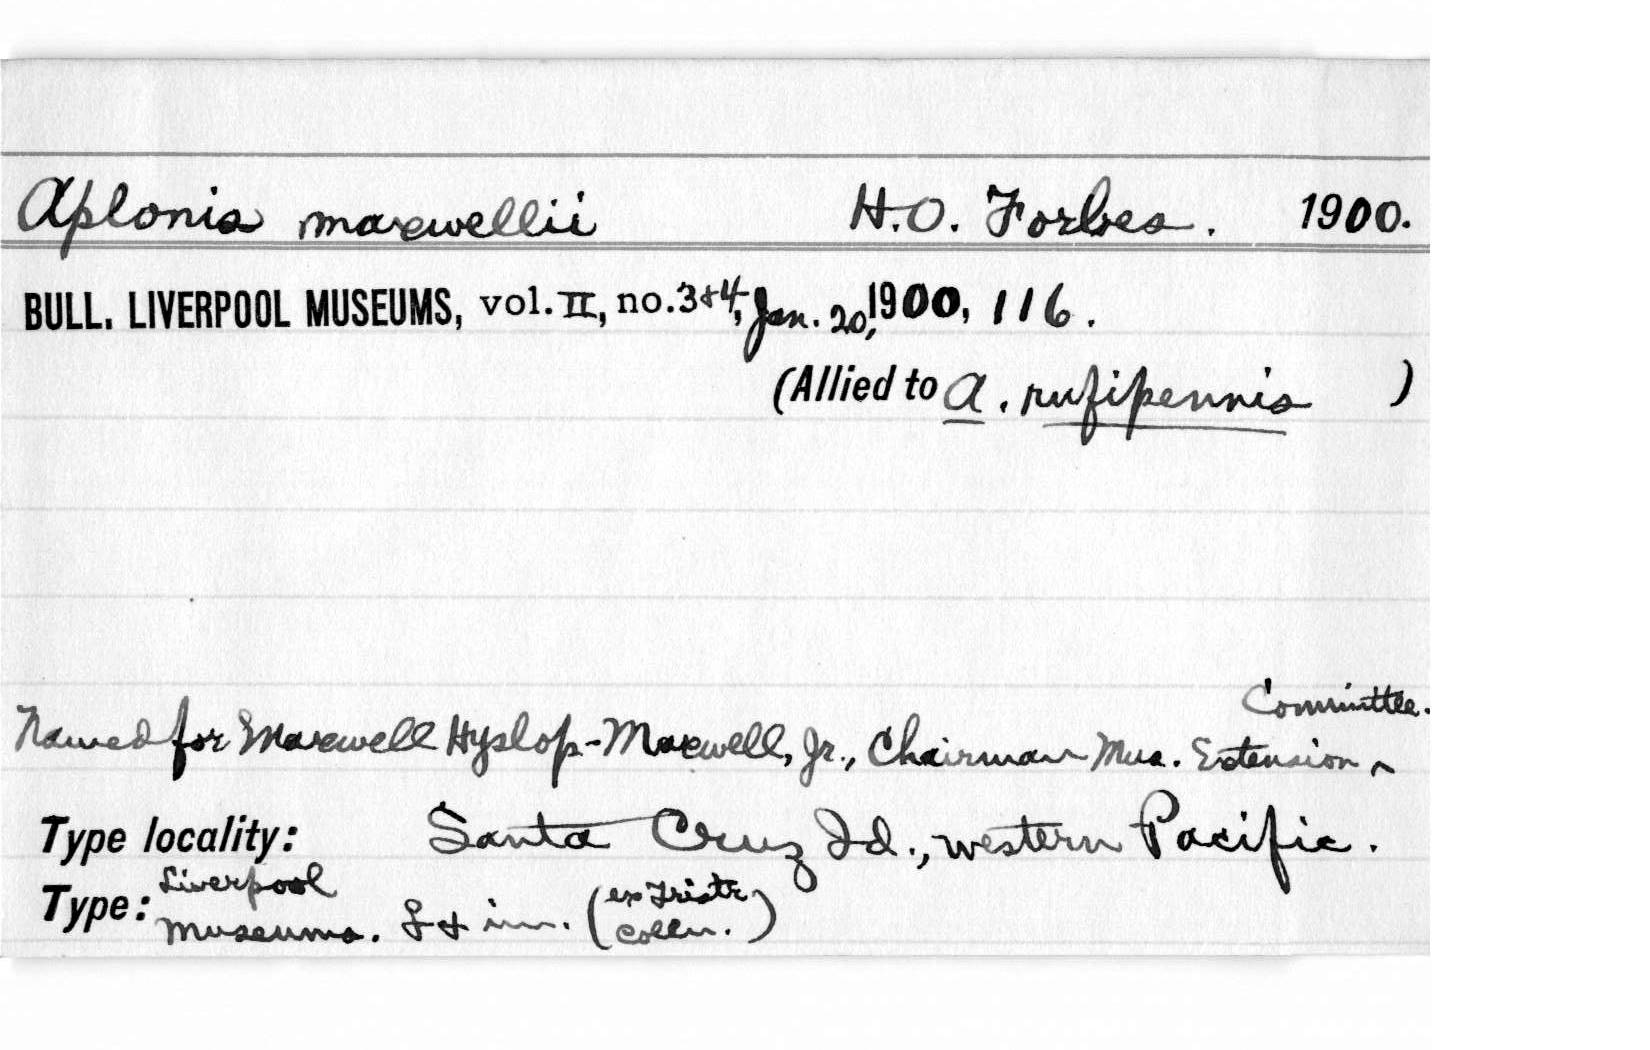 Aplonis maxwellii H.O. Forbes. 1900.
BULL. LIVERPOOL MUSEUMS, vol. II, no. 3+4, Jan. 20, 1900, 116.
(Allied to A. rufipennis )
Committee.
Named for Maxwell Hyslop-Maxwell, Jr., Chairman Mus. Extension ^
Type locality: Santa Cruz Id., western Pacific.
Liverpool (ex Tristr.
Type: Museums. & im. Colln.)